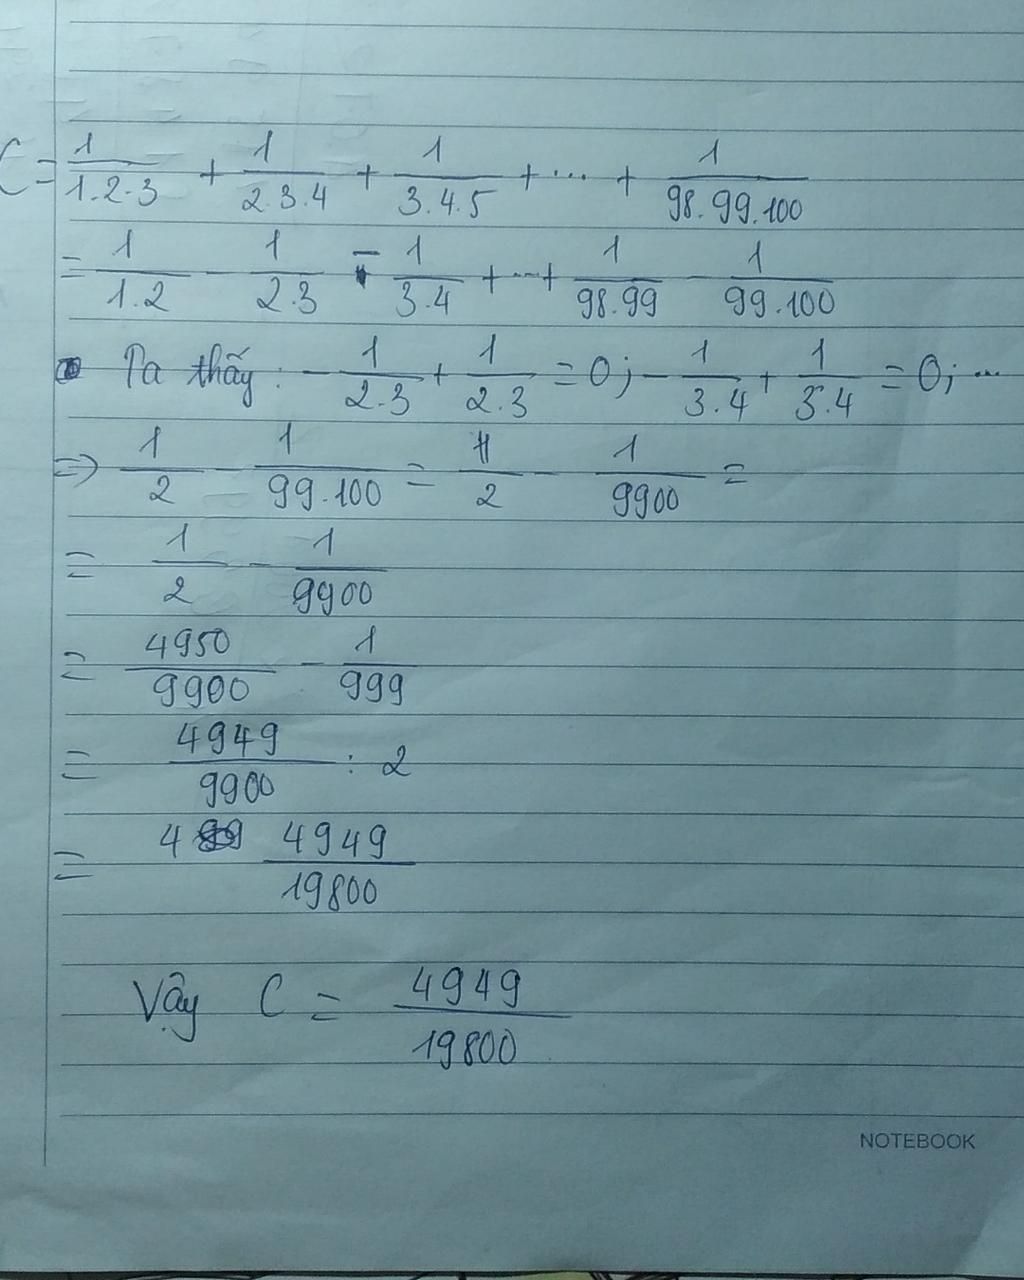 C = 1/1.2.3 + 1/2.3.4 + 1/3.4.5 + ... + 1/98.99.100
= 1/1.2 - 1/2.3 - 1/3.4 + ... + 1/98.99 - 1/99.100
Ta thấy: - 1/2.3 + 1/2.3 = 0; - 1/3.4 + 1/3.4 = 0; ...
=> 1/2 - 1/99.100 = 1/2 - 1/9900 =
= 1/2 - 1/9900
= 4950/9900 - 1/999
= 4949/9900 : 2
= 4 4949/19800
Vậy C = 4949/19800
NOTEBOOK